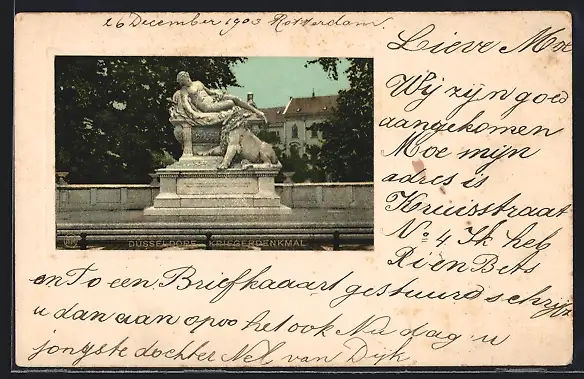 26 December 1903 Rotterdam.
Lieve Moe
Wij zijn goed
aangekomen
Moe mijn
adres is
Kruisstraat
No 4 Ik heb
Rien Bets
DÜSSELDORF KRIEGERDENKMAL
en To een Briefkaaart gestuurd schrijf
u dan aan opoe het ook Nu dag u
jongste dochter Nel van Dijk